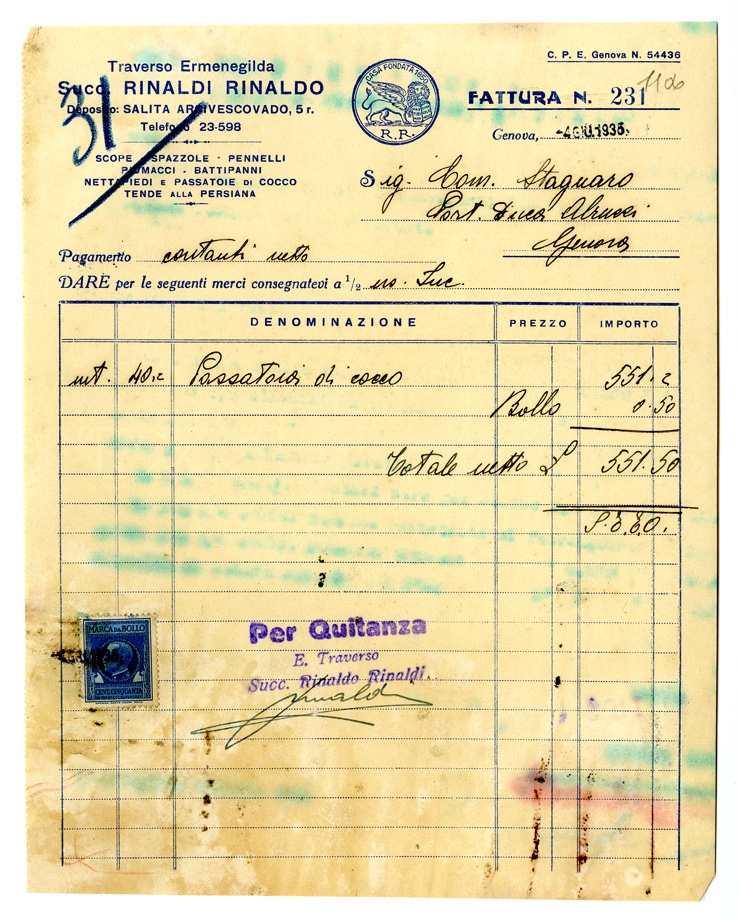 C. P. E. Genova N. 54436
Traverso Ermenegilda
Succ. RINALDI RINALDO
Deposito: SALITA ARCIVESCOVADO, 5 r.
Telefono 23-598
31
SCOPE - SPAZZOLE - PENNELLI
PIUMACCI - BATTIPANNI
NETTAPIEDI E PASSATOIE DI COCCO
TENDE ALLA PERSIANA
CASA FONDATA 1850
R. R.
FATTURA N. 231
Genova, -4 GIU. 1935.
Sig. Com. Stagnaro
Genova
Pagamento contanti netto
DARE per le seguenti merci consegnatevi a 1/2
DENOMINAZIONE PREZZO IMPORTO
mt. 40.= Passatoia di cocco 551.=
Bollo 0.50
Totale netto £ 551.50
S.E.E.O.
MARCA DA BOLLO
CENT. CINQUANTA
Per Quitanza
E. Traverso
Succ. Rinaldo Rinaldi
Rinaldi